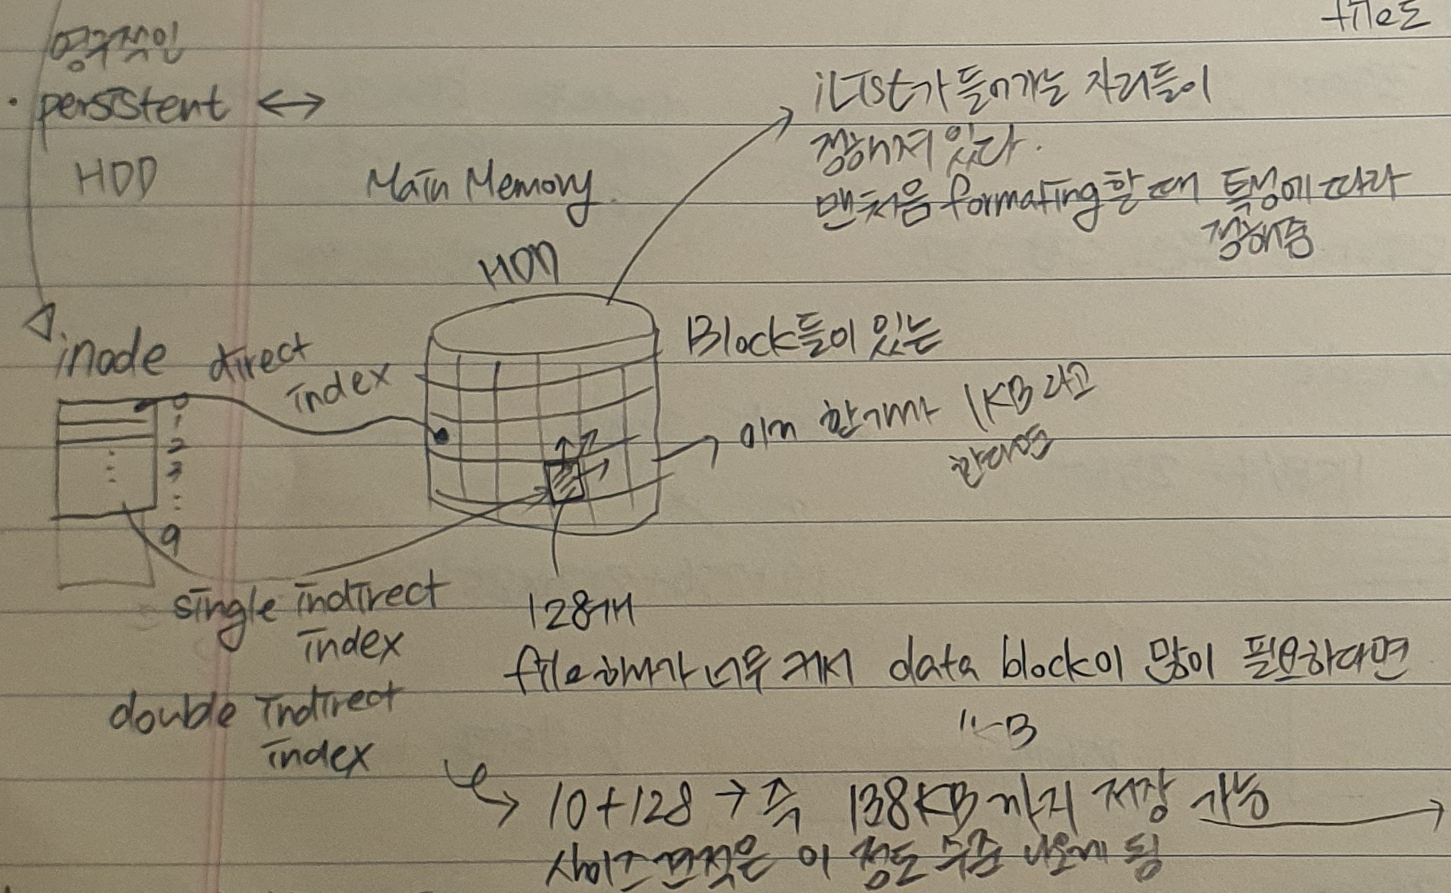 file도
영구적인
· persistent ↔
HDD
Main Memory
iList가 들어가는 자리들이
정해져 있다.
맨처음 formating할 때 특성에 따라
정해줌
HDD
Block들이 있는
이게 한개가 1KB라고
한다면
inode direct
index
0
1
2
3
:
9
single indirect
index
double indirect
index
128개
file하나가 너무 커서 data block이 많이 필요하다면
1KB
→ 10+128 → 즉 138KB까지 저장 가능 →
사이즈 면적은 이 정도 수준 나오게 됨